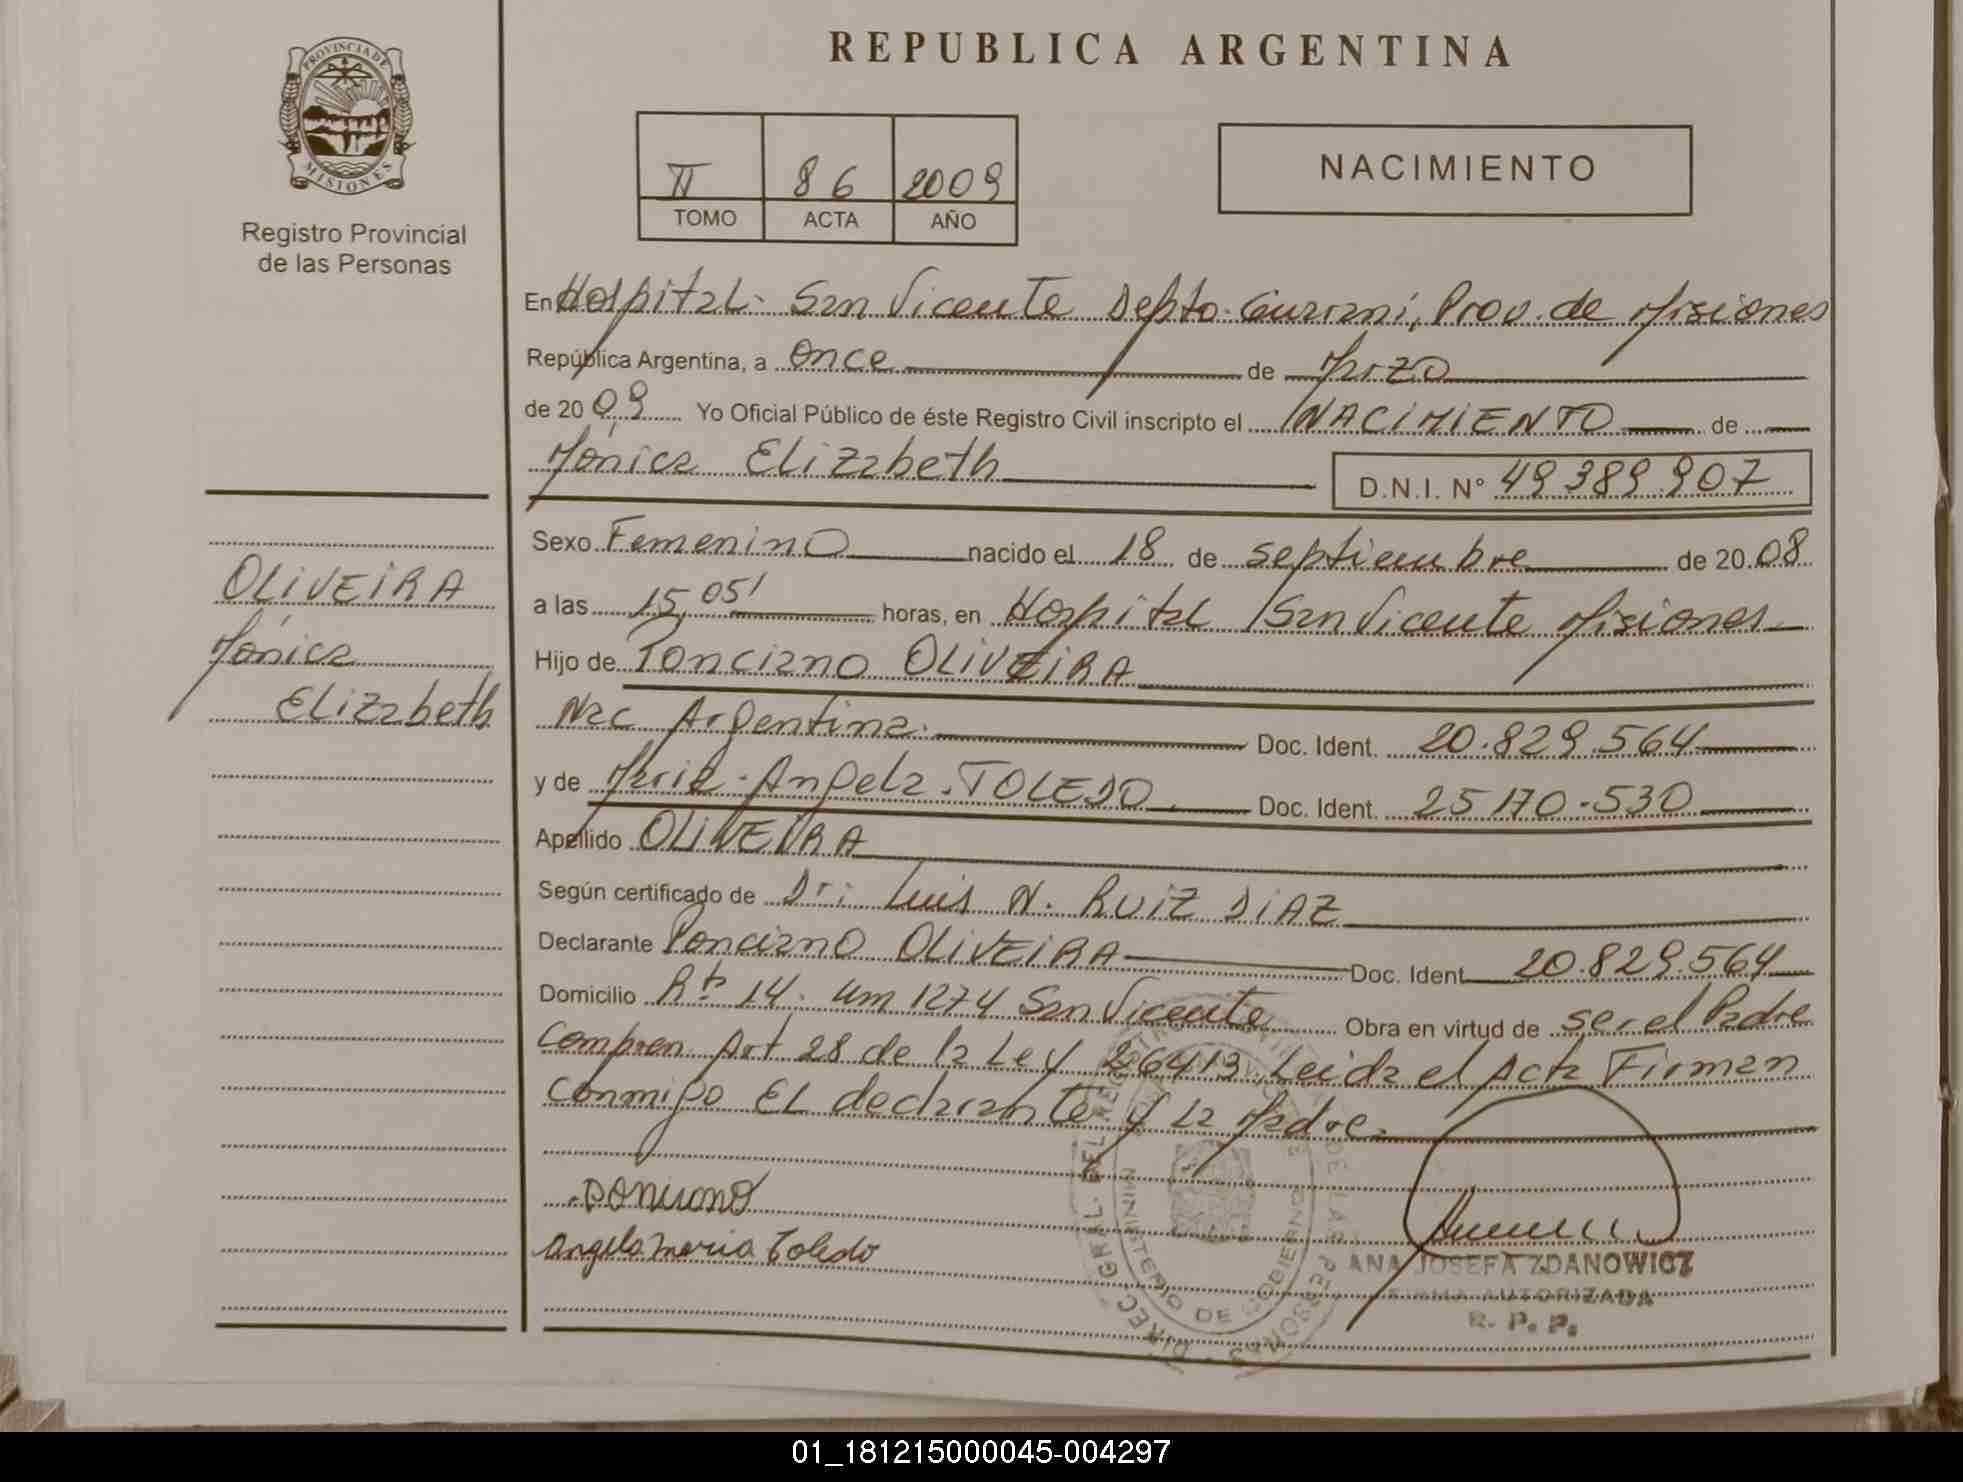 REPUBLICA ARGENTINA
PROVINCIA DE
MISIONES
Registro Provincial
de las Personas
II 86 2009
TOMO ACTA AÑO
NACIMIENTO
En Hospital. San Vicente Depto. Guarani, Prov. de Misiones
República Argentina, a once de Marzo
de 20 09 Yo Oficial Público de éste Registro Civil inscripto el NACIMIENTO de
Mónica Elizabeth D.N.I. N° 49.389.907
Sexo Femenino nacido el 18 de septiembre de 20 08
a las 15,05' horas, en Hospital San Vicente Misiones
Hijo de Ponciano OLIVEIRA
Nac Argentina. Doc. Ident. 20.829.564
y de Maria Angela TOLEDO Doc. Ident. 25.170.530
Apellido OLIVEIRA
Según certificado de Dr: Luis N. RUIZ DIAZ
Declarante Ponciano OLIVEIRA Doc. Ident. 20.829.564
Domicilio Rta 14. Km 1274 San Vicente Obra en virtud de ser el Padre
Compren Art 28 de la Ley 26413, Leida el Acta Firman
conmigo EL declarante y La Madre.
OLIVEIRA
Mónica
Elizabeth
Ponciano
Angela maria Toledo
ANA JOSEFA ZDANOWICZ
FIRMA AUTORIZADA
R. P. P.
MINISTERIO DE GOBIERNO
01_181215000045-004297